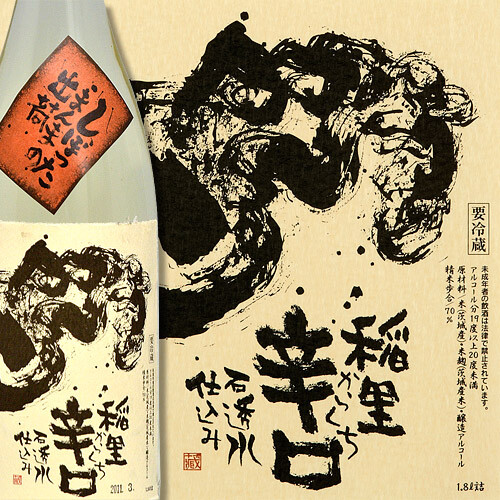 しぼった
まんまの
出荷
稲里
からくち
辛口
石透水
仕込み
要冷蔵
2011. 3.
要冷蔵
未成年者の飲酒は法律で禁止されています。
アルコール分19度以上20度未満
原材料/米(茨城産)・米麹(茨城産米)・醸造アルコール
精米歩合/70%
稲里
からくち
辛口
石透水
仕込み
1.8ℓ詰